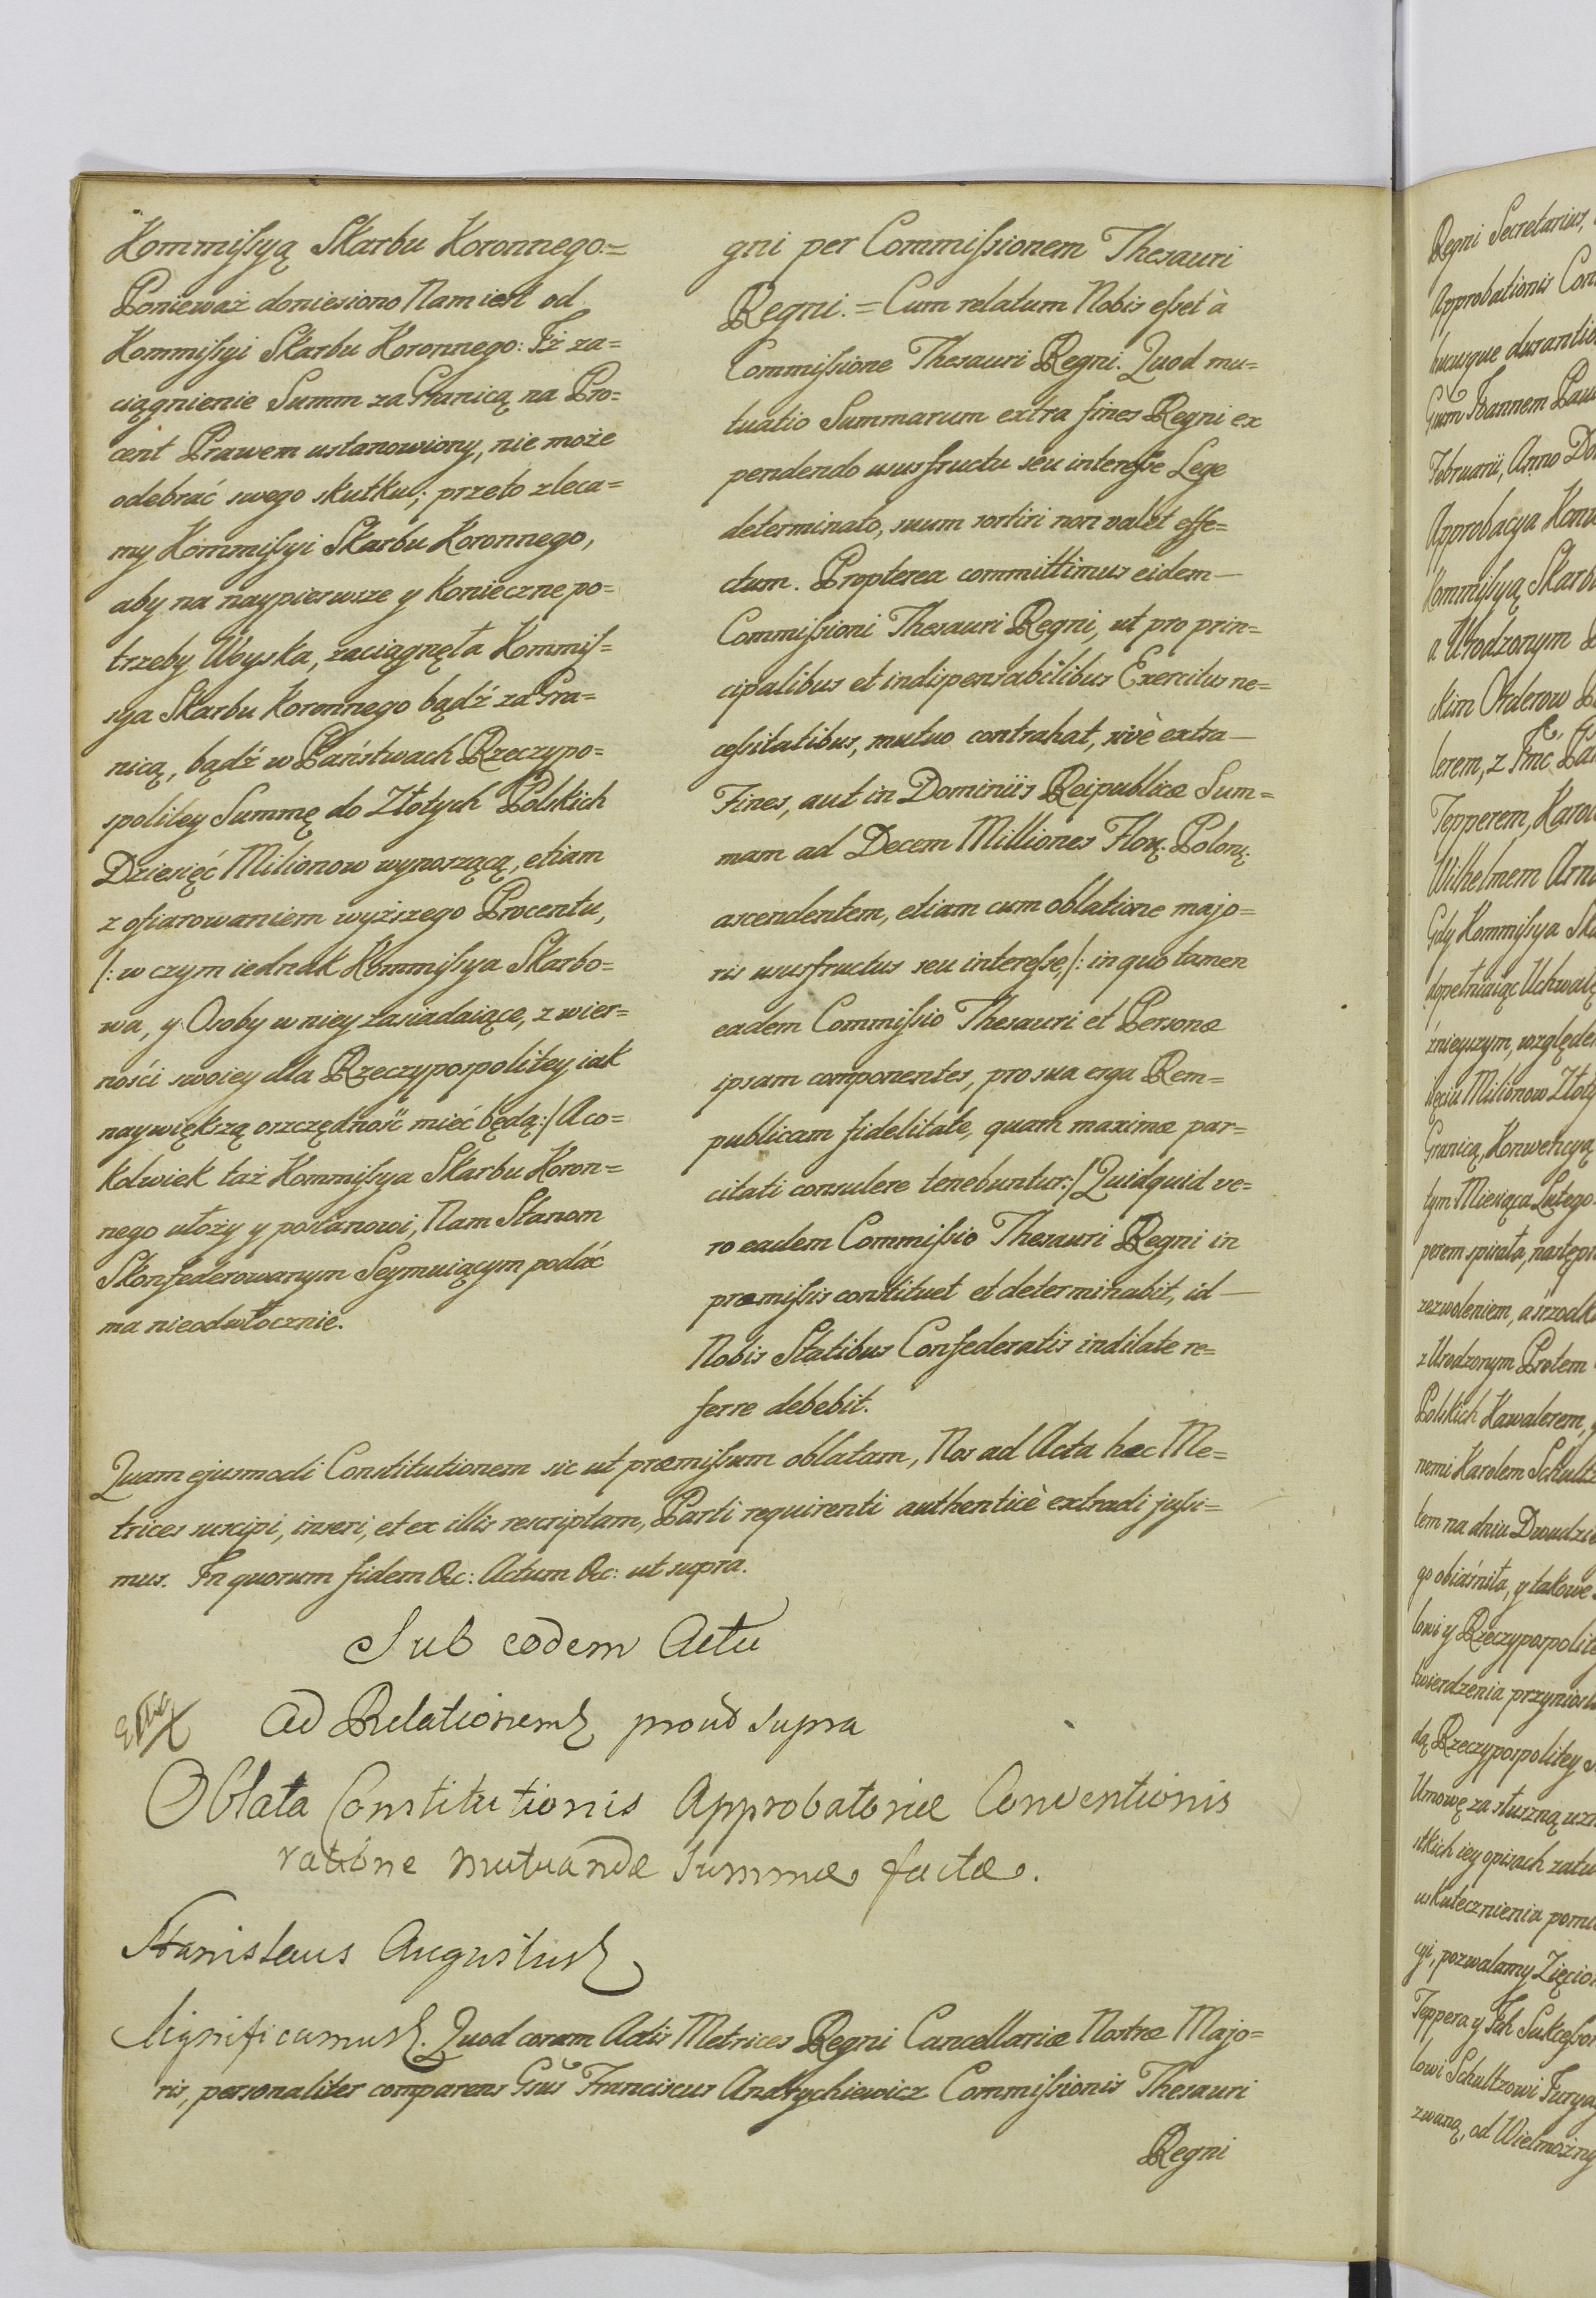 Kommissyą Skarbu Koronnego.=
Ponieważ doniesiono Nam iest od
Kommissyi Skarbu Koronnego: Iż za=
ciągnienie Summ za Granicą na Pro=
cent Prawem ustanowiony, nie może
odebrać swego skutku; przeto zleca=
my Kommissyi Skarbu Koronnego,
aby na naypierwsze y konieczne po=
trzeby Woyska, zaciągnęła Kommis=
sya Skarbu Koronnego bądź za Gra=
nicą, bądź w Państwach Rzeczypo=
spolitey Summę do Złotych Polskich
Dziesięć Milionow wynoszącą, etiam
z ofiarowaniem wyższego Procentu,
/: w czym iednak Kommissya Skarbo=
wa, y Osoby w niey zasiadaiące, z wier=
ności swoiey dla Rzeczypospolitey iak
naywiększą oszczędność mieć będą :/ A co=
kolwiek taż Kommissya Skarbu Koron=
nego ułoży y postanowi, Nam Stanom
Skonfederowanym Seymuiącym podać
ma nieodwłocznie.
gni per Commissionem Thesauri
Regni. = Cum relatum Nobis esset à
Commissione Thesauri Regni. Quod mu=
tuatio Summarum extra fines Regni ex
pendendo ususfructu seu interesse Lege
determinato, suum sortiri non valet effe=
ctum. Propterea committimus eidem —
Commissioni Thesauri Regni, ut pro prin=
cipalibus et indispensabilibus Exercitus ne=
cessitatibus, mutuo contrahat, sivè extra —
Fines, aut in Dominiis Reipublicæ Sum=
mam ad Decem Milliones Flor. Polon.
ascendentem, etiam cum oblatione majo=
ris ususfructus seu interesse, /: in quo tamen
eadem Commissio Thesauri et Personæ
ipsam componentes, pro sua erga Rem=
publicam fidelitate, quam maximæ par=
citati consulere tenebuntur :/ Quidquid ve=
ro eadem Commissio Thesauri Regni in
præmissis constituet et determinabit, id —
Nobis Statibus Confederatis indilate re=
ferre debebit.
Quam ejusmodi Constitutionem sic ut præmissum oblatam, Nos ad Acta hæc Me=
trices suscipi, inseri, et ex illis rescriptam, Parti requirenti authenticè extradi jussi=
mus. In quorum fidem &c: Actum &c: ut supra.
Sub eodem Actu
Ad Relationem prout supra
Oblata Constitutionis Approbatoriæ Conventionis
ratione mutuandæ Summæ factæ.
Stanislaus Augustus
Significamus. Quod coram Actis Metrices Regni Cancellariæ Nostræ Majo=
ris, personaliter comparens Gsus Franciscus Andrychiewicz Commissionis Thesauri
Regni
Regni Secretarius,
Approbationis
hucusque
Februarii, Anno
Approbacya
Kommissyą
a Urodzonym
ckim Orderow
Tepperem,
Wilhelmem
Gdy Kommissya
dopełniaiąc
Milionow
Granicą, Konwencyą
tym Miesiąca Lutego
z Urodzonym Protem
Polskich Kawalerem,
nemi Karolem
tem na dniu
go obiaśniła, y takowe
lowi y
twierdzenia
dą Rzeczypospolitey
Umowę za słuszną
stkich iey opisach
uskutecznienia
cyi, pozwalamy
Teppera y Ich
lowi Schultzowi
zwaną, od